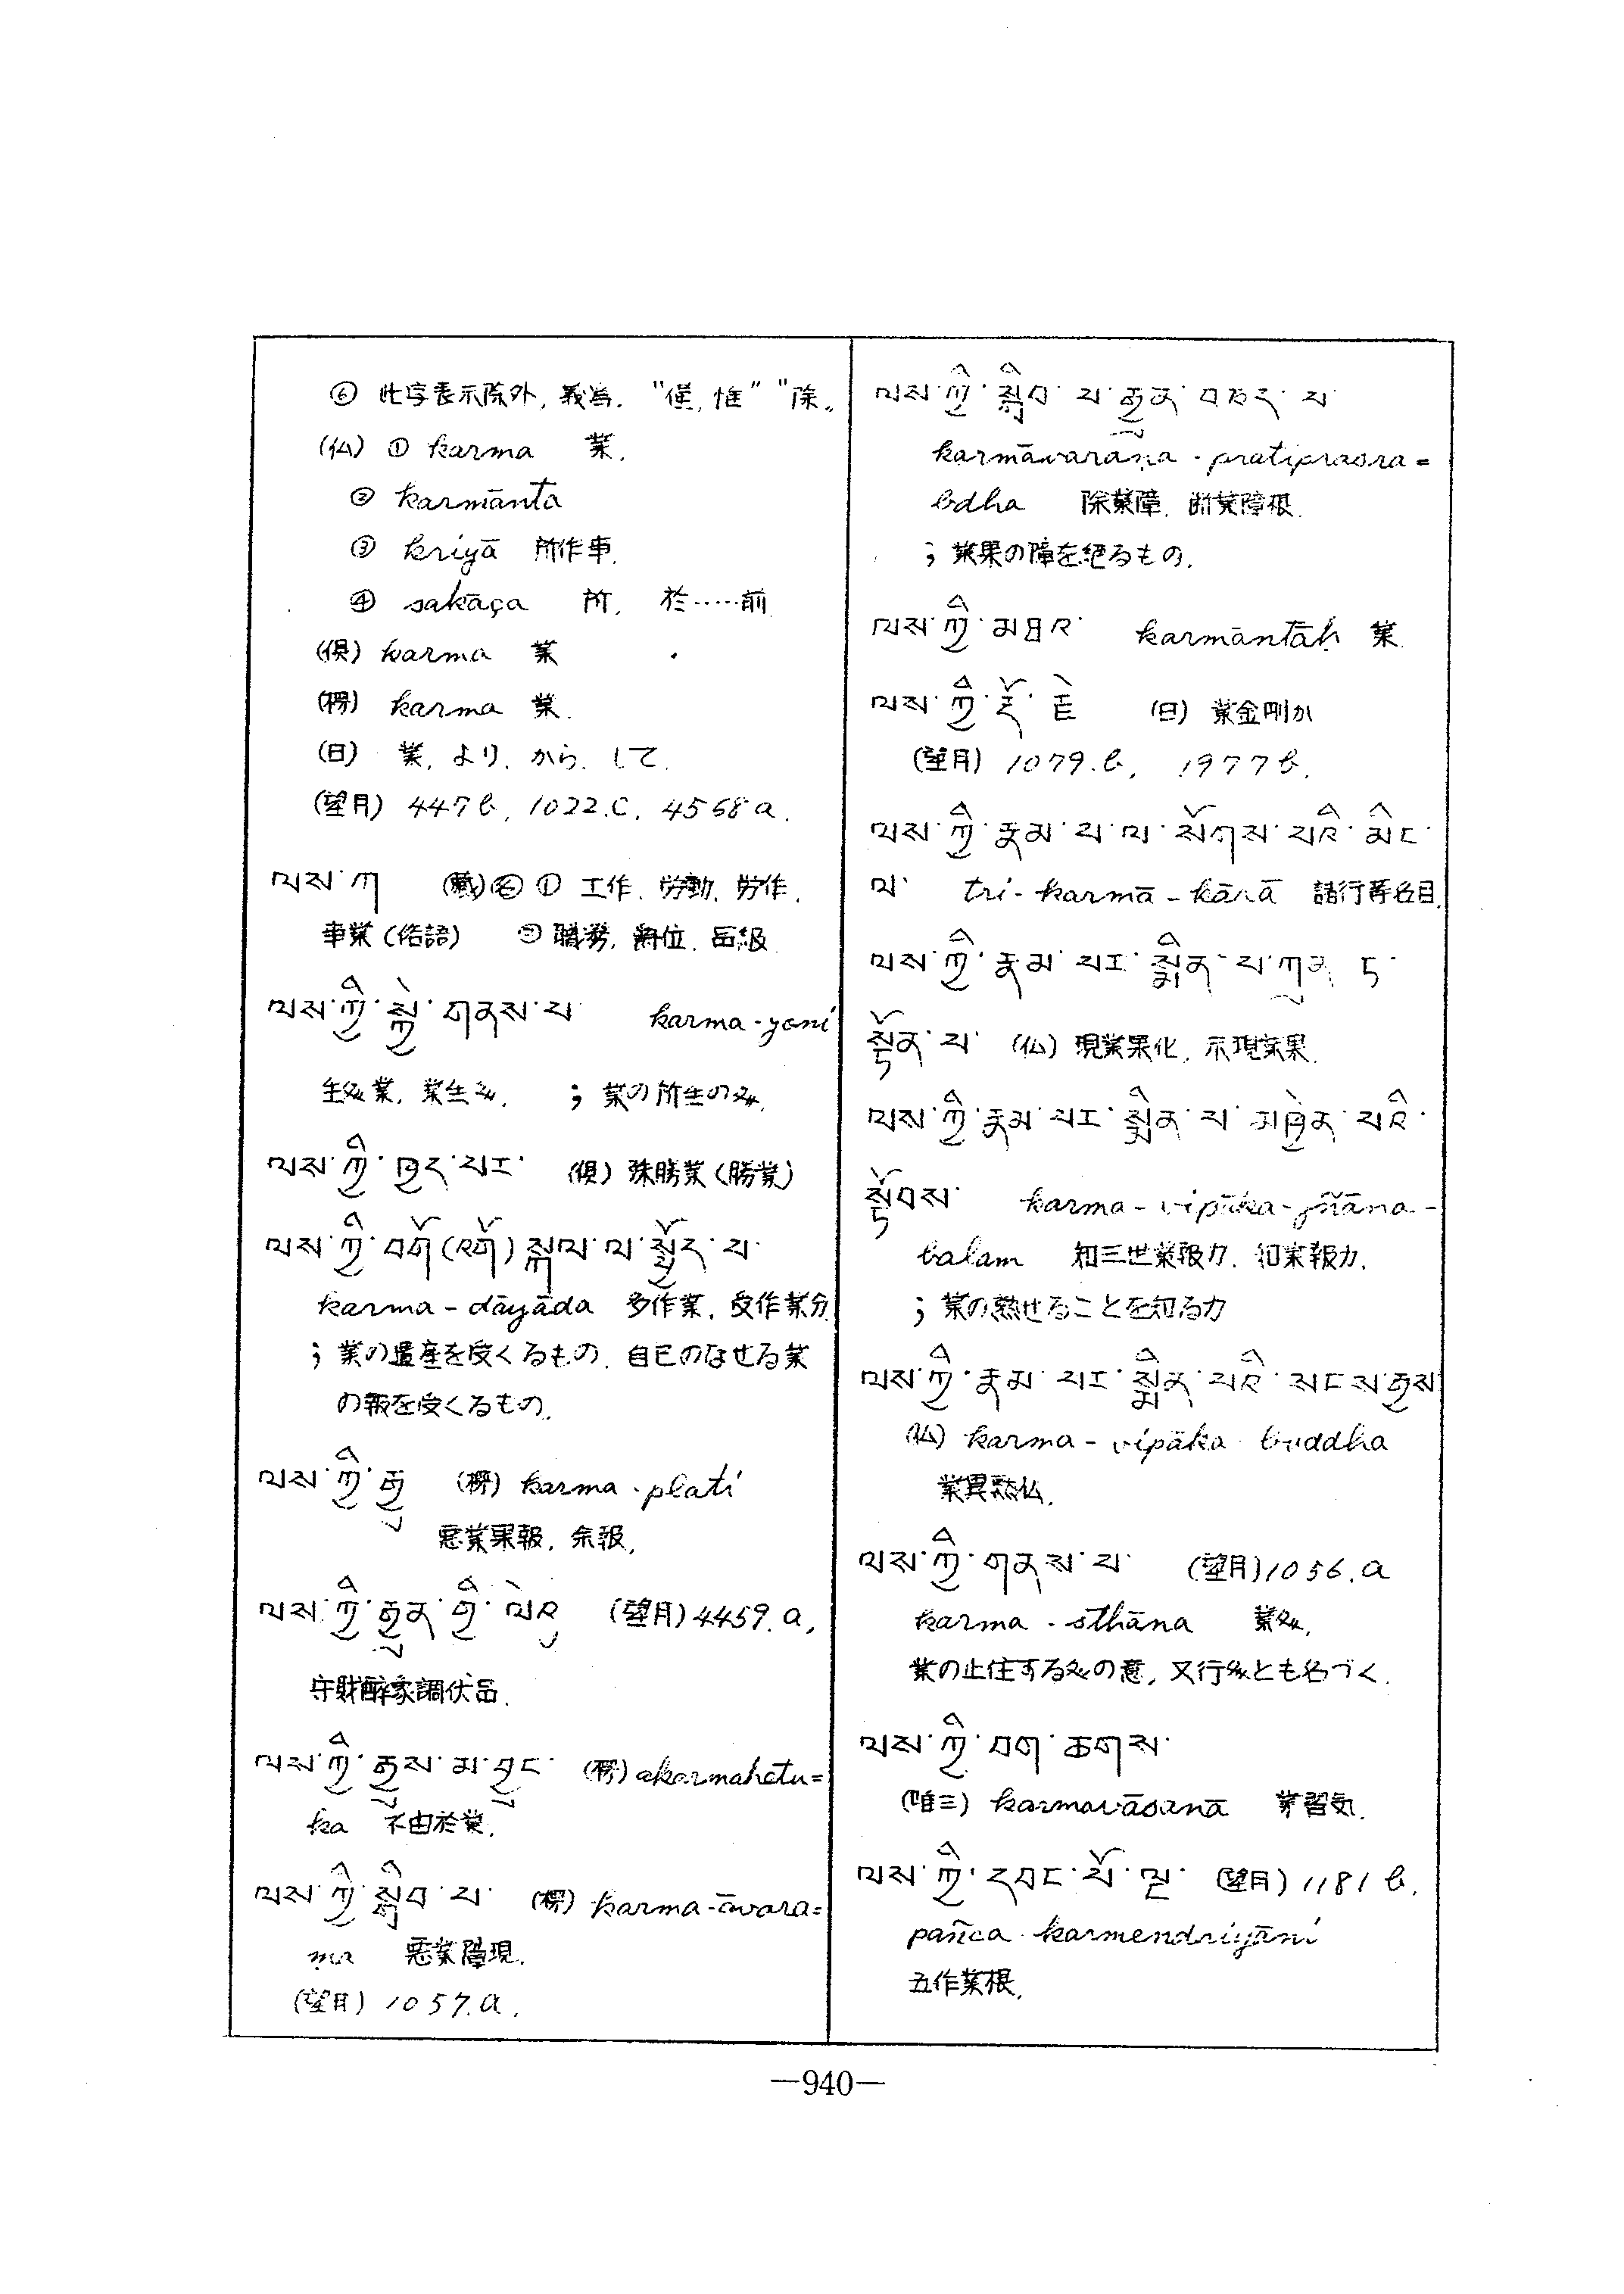 ⑥ 此字表示除外, 義為. "僅, 惟" "除。
(仏) ① karma 業.
② karmānta
③ kriyā 所作事.
④ sakāça 所, 於……前
(倶) karma 業
(楞) karma 業.
(日) 業, より, から, して.
(望月) 447b, 1022.C, 4568a.
ལས་ཀ (藏)㊔ ① 工作, 労動, 労作,
事業 (俗語) ② 職務, 爵位, 品級
ལས་ཀྱི་སྐྱེ་གནས་པ karma-yoni
生処業, 業生処, ; 業の所生の処,
ལས་ཀྱི་ཁྱད་པར་ (倶) 殊勝業 (勝業)
ལས་ཀྱི་བགོ(འགོ)སྐལ་ལ་སྤྱོད་པ་
karma-dāyāda 多作業, 受作業分
; 業の遺産を受くるもの, 自己のなせる業
の報を受くるもの.
ལས་ཀྱི་རྒྱུ (楞) karma-plati
悪業果報, 余報,
ལས་ཀྱི་རྒྱུན་གྱི་ལེའུ (望月) 4459.a,
守財酔象調伏品.
ལས་ཀྱི་རྒྱུས་མ་བྱུང་ (楞) akarmahetu=
ka 不由於業,
ལས་ཀྱི་སྒྲིབ་པ་ (楞) karma-āvara=
ṇa 悪業障現.
(望月) 1057.a.
ལས་ཀྱི་སྒྲིབ་པ་རྒྱུན་བཅད་པ་
karmāvaraṇa-pratiprasra=
bdha 除業障, 断業障根.
; 業果の障を絶るもの.
ལས་ཀྱི་མཐའ་ karmāntāḥ 業.
ལས་ཀྱི་རྡོ་རྗེ (日) 業金剛か
(望月) 1079.b, 1977b.
ལས་ཀྱི་རྣམ་པ་ལ་སོགས་པའི་མིང་
ལ་ tri-karmā-kārā 諸行等名目.
ལས་ཀྱི་རྣམ་པར་སྨིན་པ་ཀུན་ཏུ་
སྟོན་པ་ (仏) 現業果化, 示現業果.
ལས་ཀྱི་རྣམ་པར་སྨིན་པ་མཁྱེན་པའི་
སྟོབས་ karma-vipāka-jñāna-
balam 知三世業報力, 知業報力,
; 業の熟せることを知る力
ལས་ཀྱི་རྣམ་པར་སྨིན་པའི་སངས་རྒྱས
(仏) karma-vipāka-buddha
業異熟仏.
ལས་ཀྱི་གནས་པ་ (望月) 1056.a
karma-sthāna 業処,
業の止住する処の意, 又行処とも名づく.
ལས་ཀྱི་བག་ཆགས་
(唯三) karmavāsanā 業習気.
ལས་ཀྱི་དབང་པོ་ལྔ་ (望月) 1181b.
pañca-karmendriyāni
五作業根,
—940—